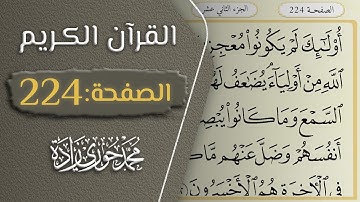 القرآن الكريم
الصفحة: 224
محمد حوري زادة
الصفحة 224
الجزء الثاني عشر
أُوْلَٰٓئِكَ لَمْ يَكُونُواْ مُعْجِزِ
ٱللَّهِ مِنْ أَوْلِيَآءَ يُضَٰعَفُ لَهُ
ٱلسَّمْعَ وَمَا كَانُواْ يُبْصِ
أَنفُسَهُمْ وَضَلَّ عَنْهُم مَّا
فِي ٱلْأٓخِرَةِ هُمُ ٱلْأَخْسَرُونَ